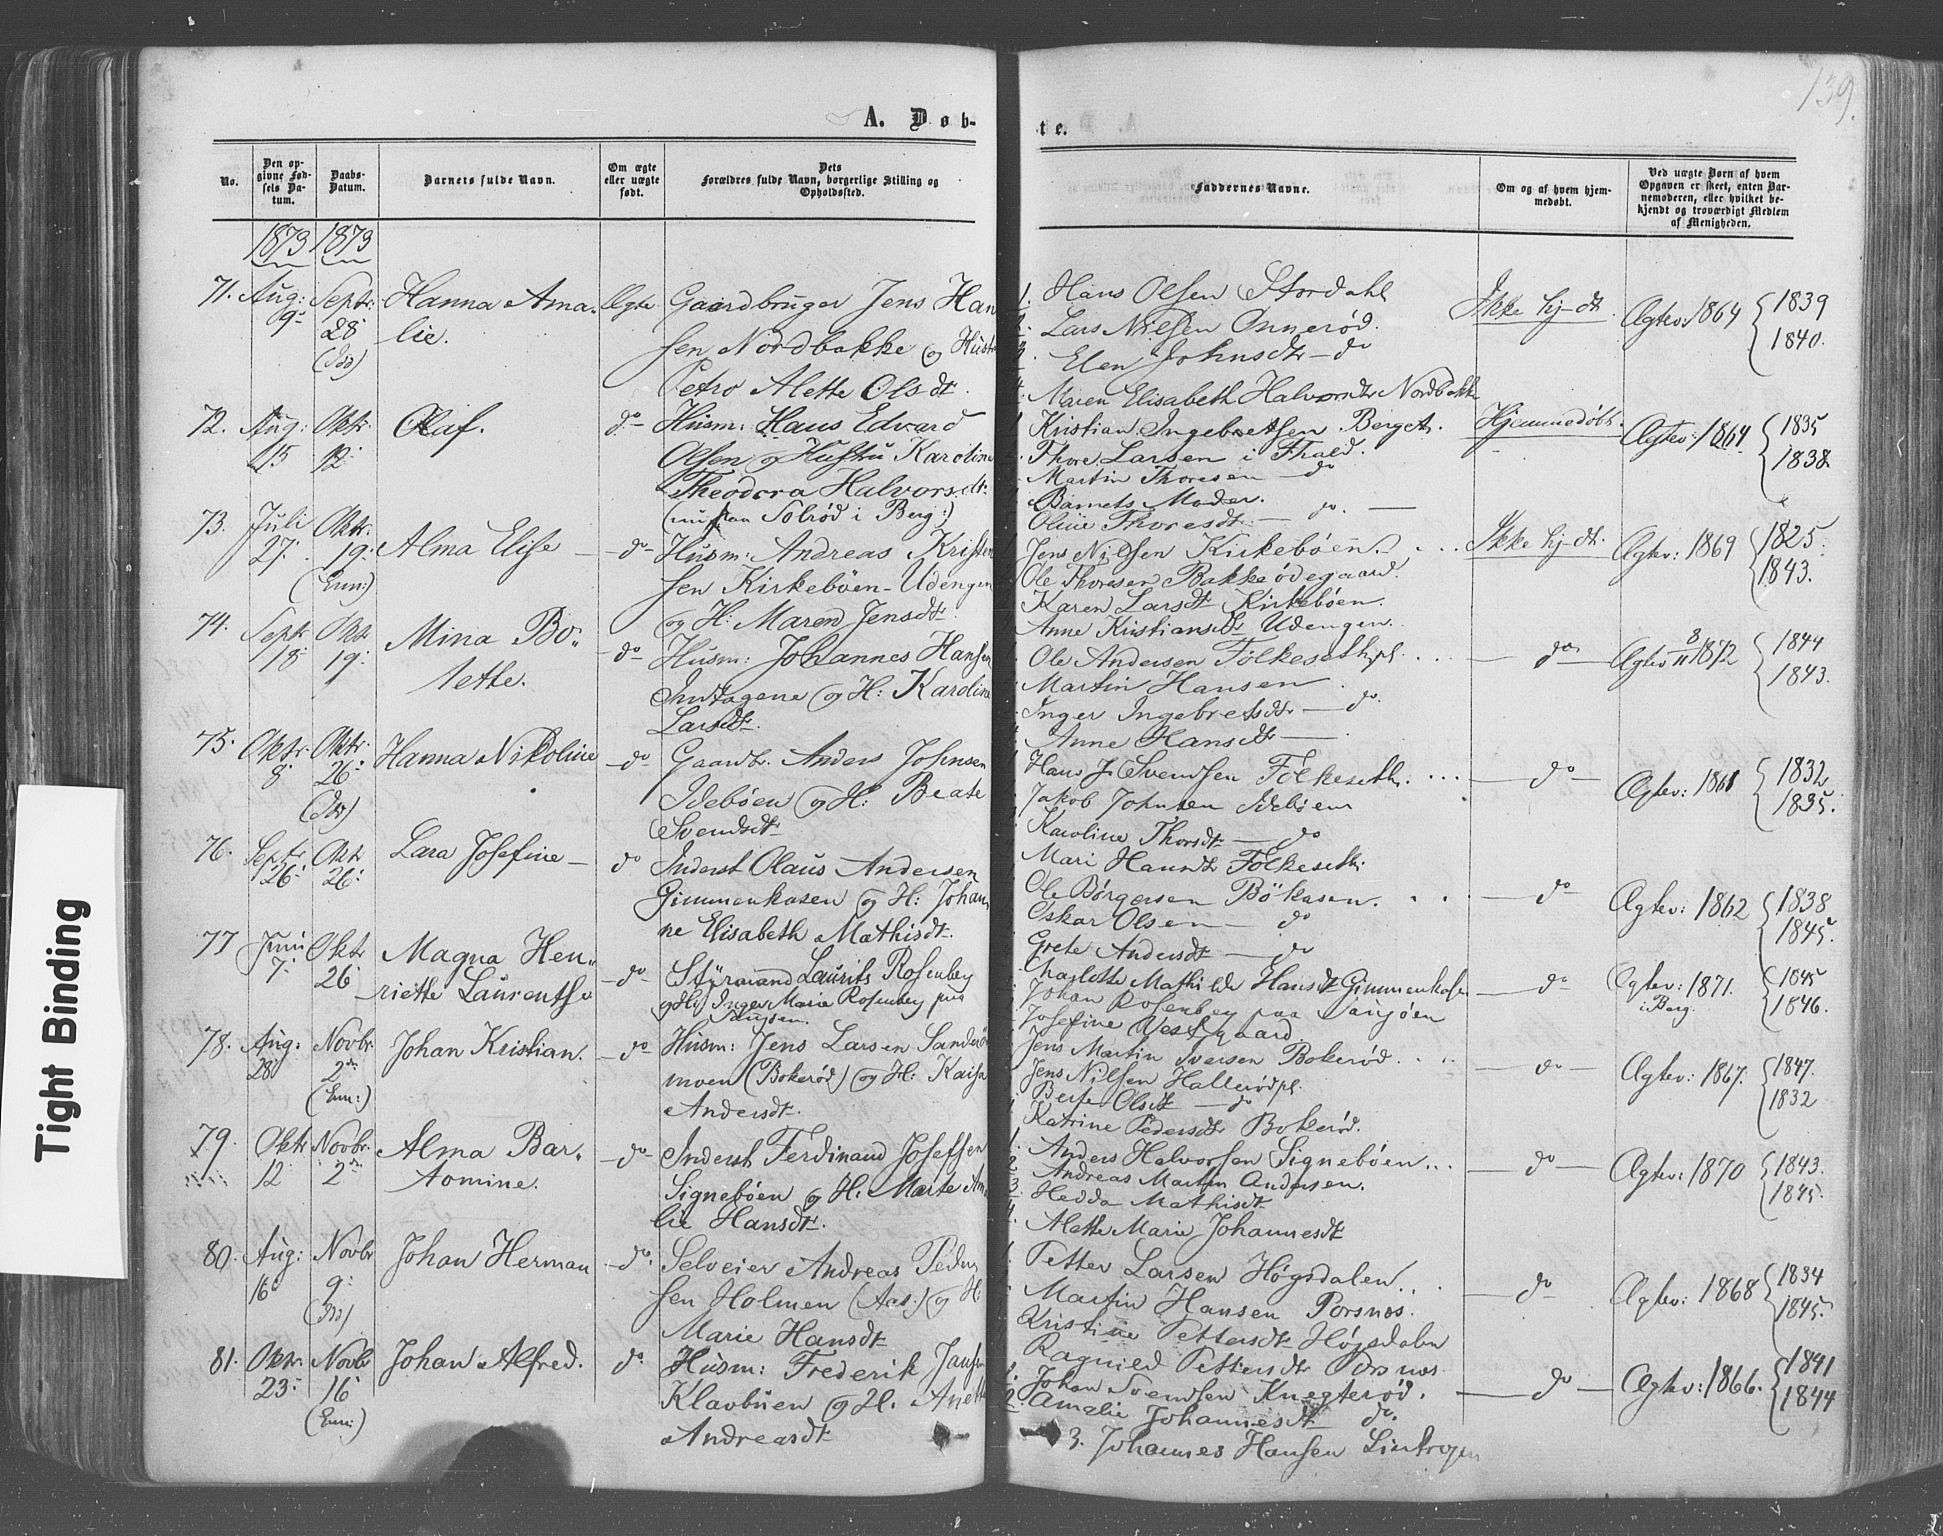 139.
A. Døb-
te.
No.
Den op-
givne Fød-
sels Da-
tum.
Daabs-
Datum.
Barnets fulde Navn.
Om ægte
eller uægte
født.
Dets
Forældres fulde Navn, borgerlige Stilling og
Opholdssted.
Faddernes Navne.
Om og af hvem hjem-
medøbt.
Ved uægte Børn af hvem
Opgaven er skeet, enten Bar-
nemoderen, eller hvilket be-
kjendt og troværdigt Medlem
af Menigheden.
1873 1873
71. Aug: 9. Septr: 28 (Ids)
Hanna Ama-
lie.
Ægte
Gaardbruger Jens Han
sen Nordbakke og Hustr
Petro Alette Olsdt.
1. Hans Olsen Stordahl
2. Lars Nilsen Onnerød.
3. Elen Johnsdtr – do
4. Maren Elisabeth Halvorsdtr Nordbakke
Ikke hj-dt.
Ægtev: 1864 { 1839
1840.
72. Aug: 15 Oktr 12
Olaf.
do
Husm: Hans Edvard
Olsen og Hustru Karoline
Theodora Halvorsdt:
(nu paa Solrød i Berg:)
Kristian Ingebretsen Berget.
Thore Larsen i Frald.
Martin Thoresen – do
Barnets Moder.
Oline Thoresdt. – do. –
Hjemmedøbt.
Ægtev: 1864. { 1835
1838
73. Juli 27. Oktr: 19: (Enni:)
Alma Elise –
do
Husm: Andreas Kristen
sen Kirkebøen-Udengen
og H: Maren Jensdt.
Jens Nilsen Kirkebøen.
Ole Thoresen Bakkeødegaard.
Karen Larsdt Kirkebøen.
Anne Kristiansdt Udengen.
Ikke hj-dt.
Ægtev: 1869 { 1825.
1843.
74. Septr 18: Oktr 19:
Mina Bo-
lette.
do
Husm: Johannes Hansen
og H: Karoline
Larsdt.
Ole Andersen Folkesethpl.
Martin Hansen
Inger Ingebretsdtr – do.
Anne Hansdt –
do
Ægtev 8/11 1872 { 1844
1843.
75. Oktr: 8: Oktr: 26: (Ids)
Hanna Nikoline
do
Gaardbr. Anders Johnsen
Idebøen og H: Beate
Svendsdt
Hans J. Svendsen Folkeseth.
Jakob Johnsen Idebøen
Karoline Thorsdt – do
Mari Hansdtr Folkeseth:
do
Ægtev: 1861 { 1832
1835.
76. Septr 26: Oktr 26:
Lara Josefine –
do
Inderst Olaus Andersen
Gimmenkasen og H: Johan
ne Elisabeth Mathisdt.
Ole Børgersen Bökasen.
Oskar Olsen – do
Grete Andersdt – do
Charlotte Mathilde Hansdt Gimmenkasen
do
Ægtev: 1862 { 1838
1845.
77 Juni 7. Oktr 26
Magna Hen-
riette Laurentse
do
Styrmand Laurits Rosenberg
og H: Inger Marie Rosenberg paa
Saugøen.
Johan Rosenberg paa Saugøen
Josefine Vestgaard
do
Ægtev: 1871. { 1845
i Berg. 1846.
78. Aug: 28 Novbr 2den (Enn:)
Johan Kristian.
do
Husm: Jens Larsen Sanderød
moen (Bokerød) og H: Kaisa
Andersdt.
Jens Martin Iversen Bokerød.
Jens Nilsen Hallerødpl.
Berte Olsdt – do
Katrine Pedersdtr Bokerød.
do
Ægtev: 1867. { 1847.
1832
79. Oktr 12 Novbr 2den
Alma Bar-
tomine.
do
Inderst Ferdinand Josefsen
Signebøen og H: Marte Am
lie Hansdt.
1. Anders Halvorsen Signebøen...
2. Andreas Martin Andersen.
3. Hedda Mathisdt
4. Alette Marie Johannesdt
do
Ægtev: 1870 { 1843.
1845.
80. Aug: 16 Novbr 9: (Ids)
Johan Herman
do.
Selveier Andreas Peder
sen Holmen (Aas:) og H:
Marie Hansdt
Petter Larsen Høgsdalen.
Martin Hansen Porsnes.
Kristine Pettersdt Høgsdalen
Ragnild Pettersdtr Porsnes
do
Ægtev: 1868 { 1834
1845.
81. Oktr. 23: Novbr 16 (Enn:)
Johan Alfred.
do
Husm: Frederik Jansen
Klavbuen og H. Anette
Andreasdt
1. Johan Svendsen Knegterød.
2. Amalie Johannesdt do.
3. Johannes Hansen
do
Ægtev: 1866. { 1841
1844
Tight Binding